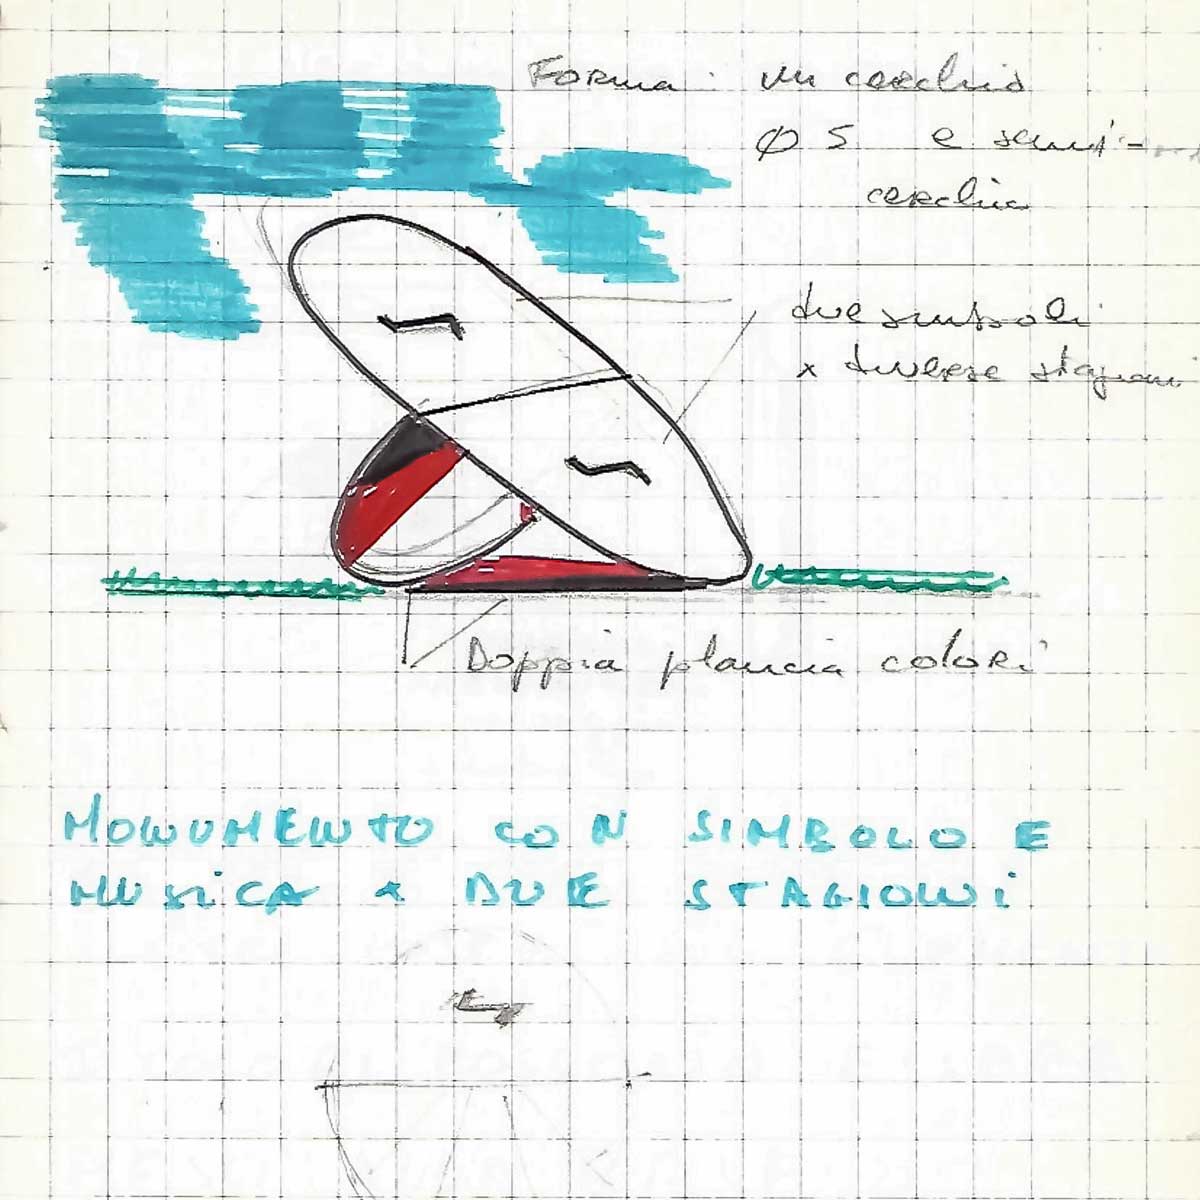 Forma : un cerchio
Ø 5 e semi-
cerchio
due simboli
x diverse stagioni
Doppia plancia colori
MONUMENTO CON SIMBOLO E
MUSICA x DUE STAGIONI